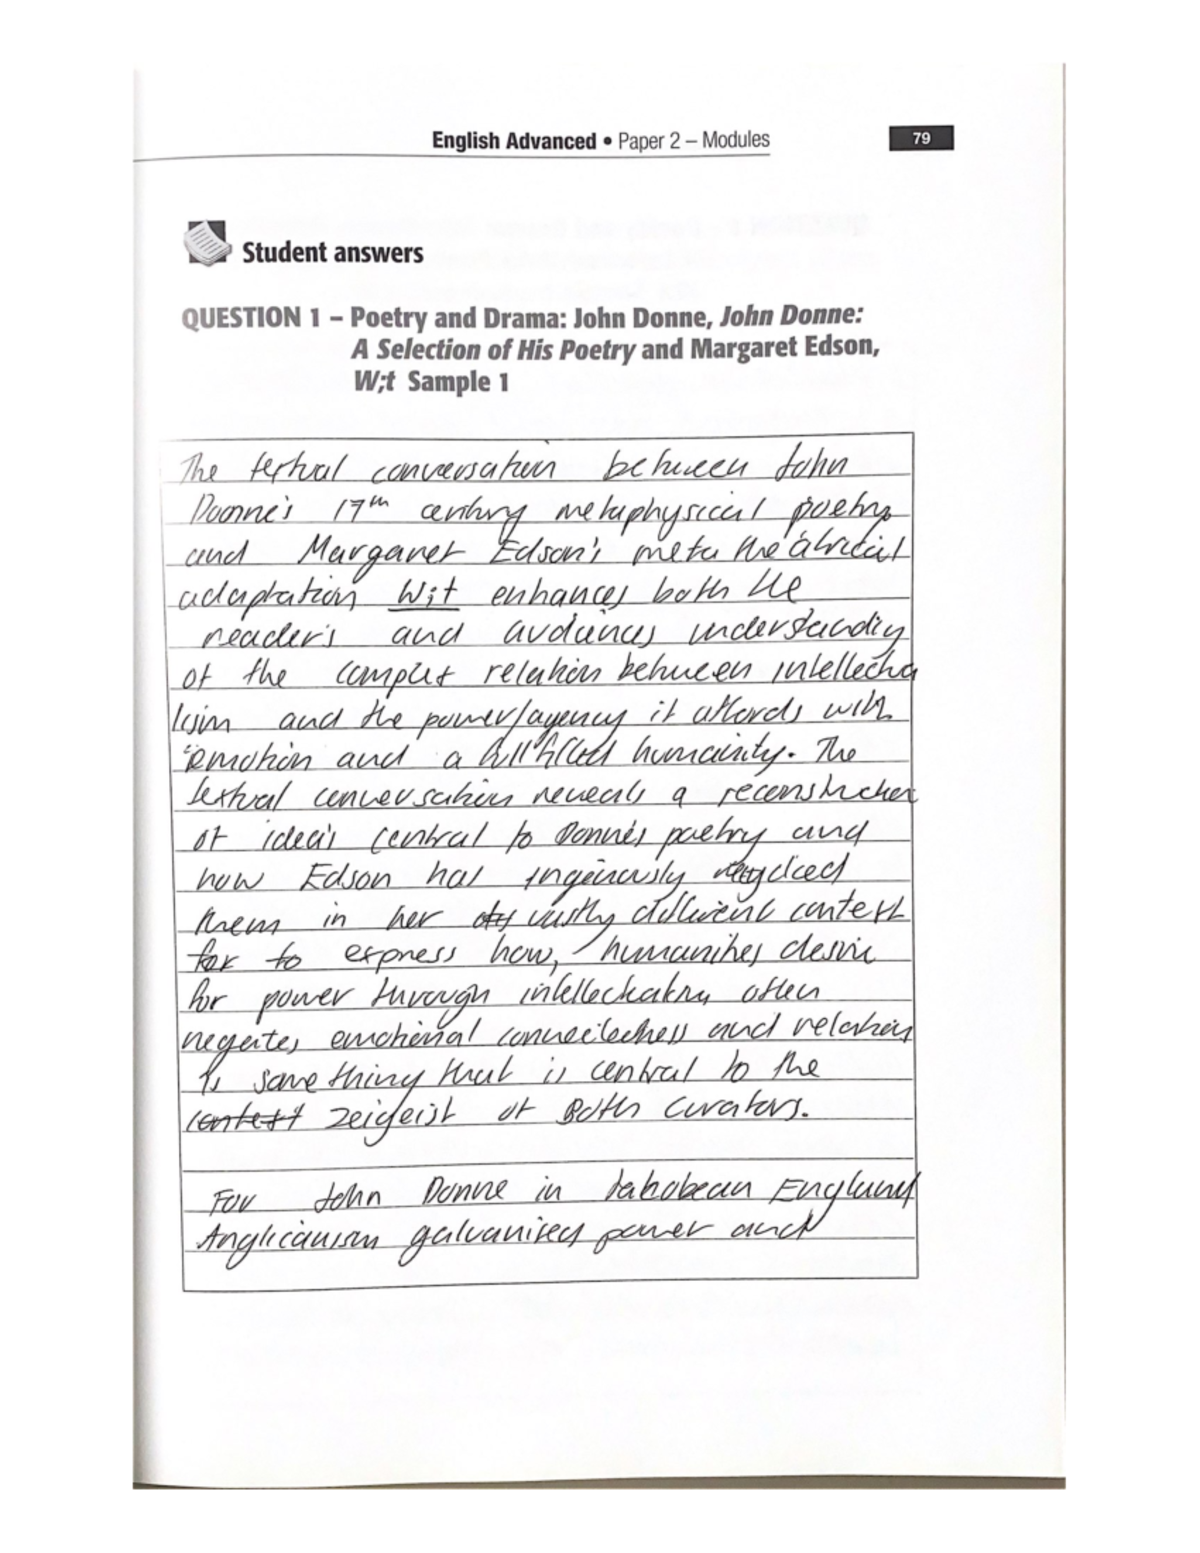 English Advanced • Paper 2 – Modules
79
Student answers
QUESTION 1 – Poetry and Drama: John Donne, John Donne:
A Selection of His Poetry and Margaret Edson,
W;t Sample 1
The textual conversation between John
Donne's 17th century metaphysical poetry
and Margaret Edson's meta theatrical
adaptation W;t enhances both the
reader's and audiences understanding
of the complex relation between intellectua
lism and the power/agency it affords with
emotion and a fulfilled humanity. The
textual conversation reveals a reconstruction
of idea's central to Donne's poetry and
how Edson has ingeniously
them in her vastly different context
for to express how, humanities desire
for power through intellectualism often
negates emotional connectedness and relation
is something that is central to the
context zeigeist of Both curators.
For John Donne in Jakobean England
Anglicanism galvanised power and